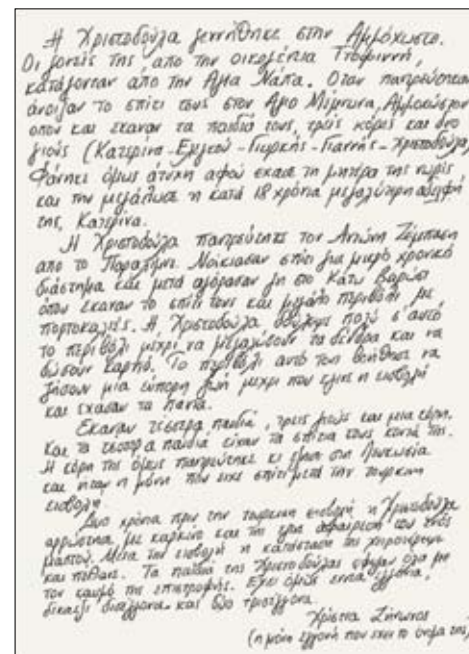 Η Χριστοδούλα γεννήθηκε στην Αμμόχωστο.
Οι γονείς της, απο την οικογένεια
κατάγονταν απο την Αγια Ναπα. Οταν παντρεύτηκαν
άνοιξαν το σπίτι τους στον Αγιο Μέμνωνα, Αμμοχώστου
οπου και εκαναν τα παιδιά τους, τρείς κόρες και δυο
γιούς (Κατερίνα - Ελεγκού - Γιωρκής - Γιαννής - Χριστοδούλα)
Φάνηκε όμως άτυχη αφού εχασε τη μητέρα της νωρίς
και την μεγάλωσε η κατά 18 χρόνια μεγαλύτερη αδερφή
της, Κατερίνα.
Η Χριστοδούλα παντρεύτηκε τον Αντώνη Ζέμπαση
απο το Παραλίμνι. Νοίκιασαν σπίτι για μικρό χρονικό
διάστημα και μετά αγόρασαν γη στο Κάτω Βαρώσι
όπου εκαναν το σπίτι τους και μεγάλο περιβόλι με
πορτοκαλιές. Η Χριστοδούλα δούλεψε πολύ σ' αυτό
το περιβόλι μέχρι να μεγαλώσουν τα δένδρα και να
δώσουν καρπό. Το περιβόλι αυτό τους βοήθησε να
ζήσουν μία εύπορη ζωή μεχρι που εγινε η εισβολή
και εχασαν τα παντα.
Εκαναν τεσσερα παιδιά, τρεις γιούς και μια κόρη.
Και τα τεσσερα παιδιά είχαν τα σπίτια τους κοντά της.
Η κόρη της όμως παντρεύτηκε κι εμεινε στη Λευκωσία
και ήταν η μόνη που ειχε σπίτι μετά την τουρκικη
εισβολη.
Δυο χρόνια πριν την τουρκικη εισβολή η Χριστοδούλα
αρρώστησε με καρκίνο και της εγινε αφαιρεση του ενός
μαστού. Μετα την εισβολή η κατάσταση της χειροτέρεψε
και πέθανε. Τα παιδιά της Χριστοδούλας εφυγαν όλα με
τον καημό της επιστροφής. Εχει όμως εννια εγγόνια,
δεκαεξι δισέγγονα και δύο τρισέγγονα.
Χρίστια Ζήνωνος
(η μόνη εγγονή που εχει το όνομα της)